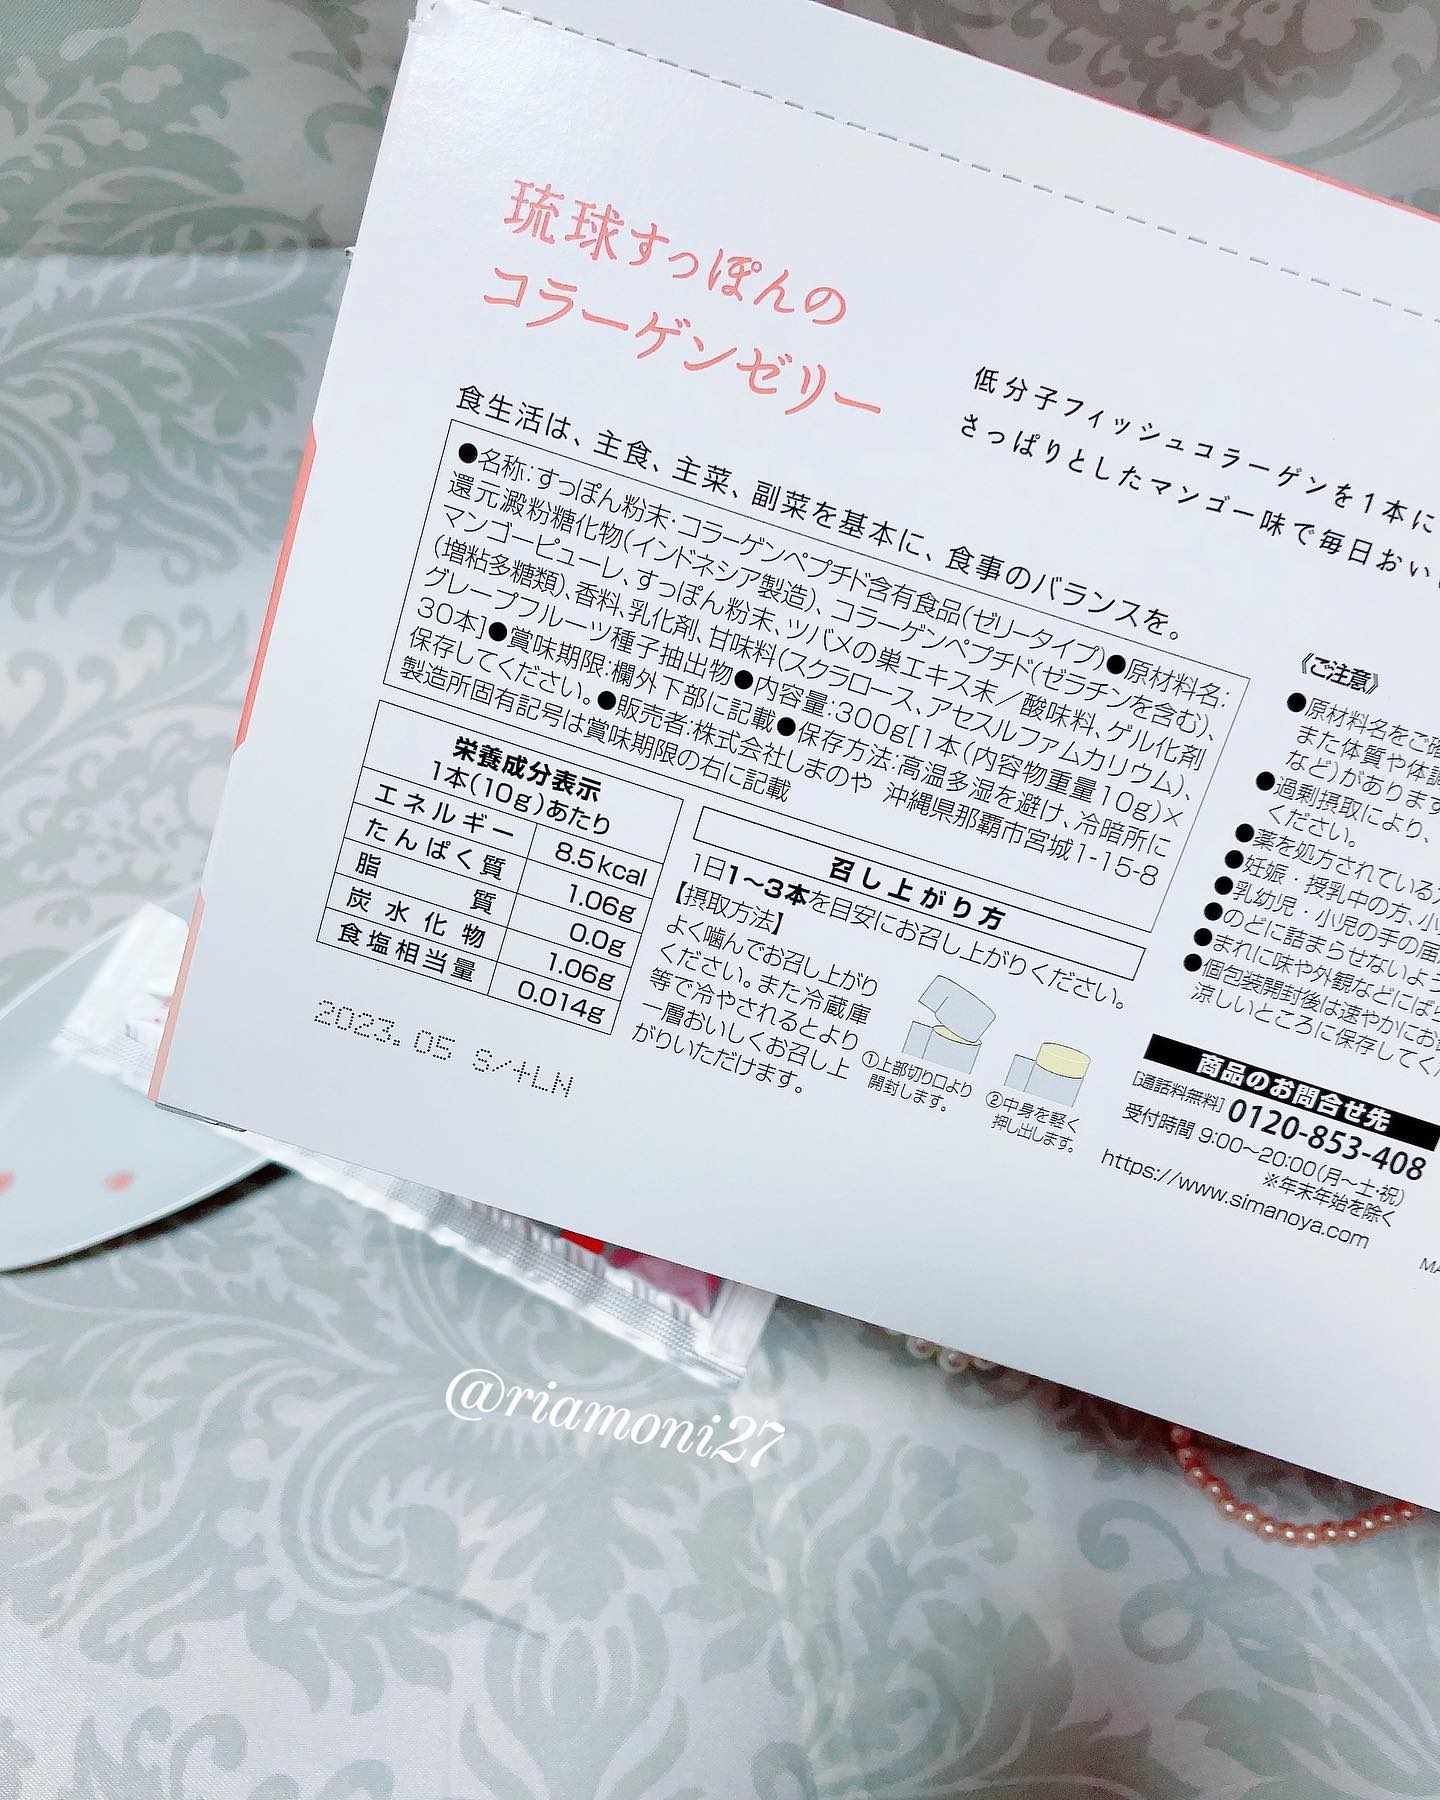 琉球すっぽんの
コラーゲンゼリー
低分子フィッシュコラーゲンを1本に
さっぱりとしたマンゴー味で毎日おい
食生活は、主食、主菜、副菜を基本に、食事のバランスを。
●名称:すっぽん粉末・コラーゲンペプチド含有食品(ゼリータイプ)●原材料名:
還元澱粉糖化物(インドネシア製造)、コラーゲンペプチド(ゼラチンを含む)、
マンゴーピューレ、すっぽん粉末、ツバメの巣エキス末/酸味料、ゲル化剤
(増粘多糖類)、香料、乳化剤、甘味料(スクラロース、アセスルファムカリウム)、
グレープフルーツ種子抽出物●内容量:300g[1本(内容物重量10g)×
30本]●賞味期限:欄外下部に記載●保存方法:高温多湿を避け、冷暗所に
保存してください。●販売者:株式会社しまのや 沖縄県那覇市宮城1-15-8
製造所固有記号は賞味期限の右に記載
栄養成分表示
1本(10g)あたり
エネルギー 8.5kcal
たんぱく質 1.06g
脂質 0.0g
炭水化物 1.06g
食塩相当量 0.014g
2023.05 S/+LN
召し上がり方
1日1～3本を目安にお召し上がりください。
【摂取方法】
よく噛んでお召し上がり
ください。また冷蔵庫
等で冷やされるとより
一層おいしくお召し上
がりいただけます。
①上部切り口より
開封します。
②中身を軽く
押し出します。
《ご注意》
●原材料名をご確
また体質や体調
など)があります
●過剰摂取により、
ください。
●薬を処方されている
●妊娠・授乳中の方、小
●乳幼児・小児の手の届
●のどに詰まらせないよう
●まれに味や外観などにばら
●個包装開封後は速やかにお
涼しいところに保存してく
商品のお問合せ先
[通話料無料]0120-853-408
受付時間 9:00～20:00(月～土・祝)
※年末年始を除く
https://www.simanoya.com
MA
@riamoni27